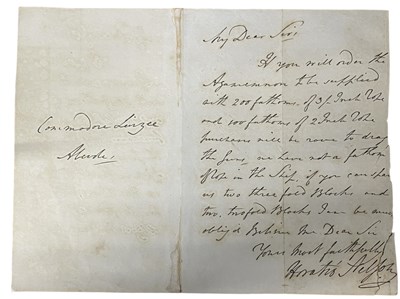 Commodore Linzee
My Dear Sir
If you will order the
Agamemnon to be supplied
with 200 fathoms of 3½ Inch Rope
and 100 fathoms of 2 Inch Rope
purchases will be rove to drag
the Guns, we have not a fathom
of Rope in the Ship, if you can spare
us two three fold Blocks and
two, twofold Blocks I am be much
oblig'd Believe me Dear Sir
Yours Most faithfully
Horatio Nelson